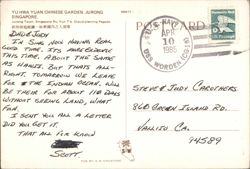 YU HWA YUAN CHINESE GARDEN, JURONG
SINGAPORE.
DAD & JUDY
IN SING NOW HAVING REAL
GOOD TIME. ITS
THIS TIME. ABOUT THE SAME
AS HAWII. BUT THATS ALL-
RIGHT. TOMORROW WE LEAVE
FOR THE INDIAN OCEAN. WILL
BE THEIR FOR ABOUT 110 DAYS
WITHOUT SEEING LAND, WHAT
FUN.
I SENT YOU ALL A LETTER
DID YOU GET IT.
THAT ALL FOR KNOW
SCOTT.
POST CARD
U.S. NAVY
APR
10
1985
USS WORDEN (CG
STEVE & JUDY CAROTHERS
ISLAND RD.
VALLEJO CA.
94589